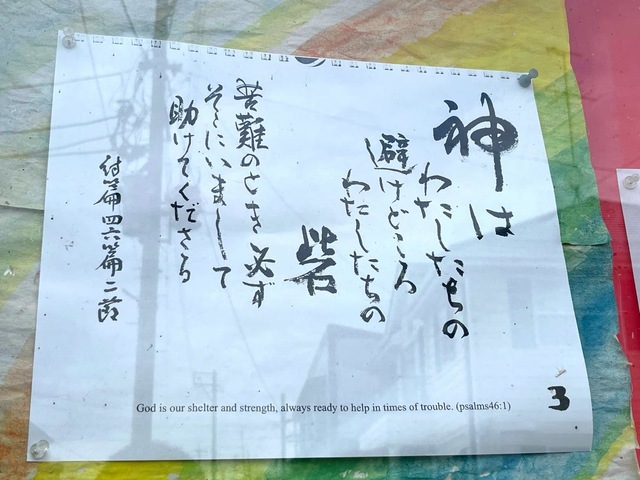 神は
わたしたちの
避けどころ
わたしたちの
砦
苦難のとき 必ず
そこにいまして
助けてくださる
詩篇四六篇二節
God is our shelter and strength, always ready to help in times of trouble. (psalms46:1)
3